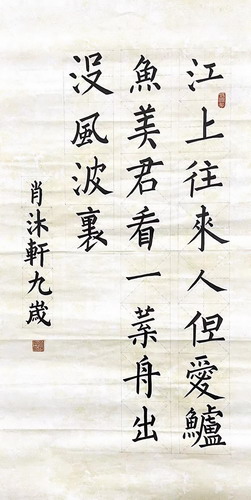 江上往來人但愛鱸
魚美君看一葉舟出
没風波裏
肖沐軒九歲